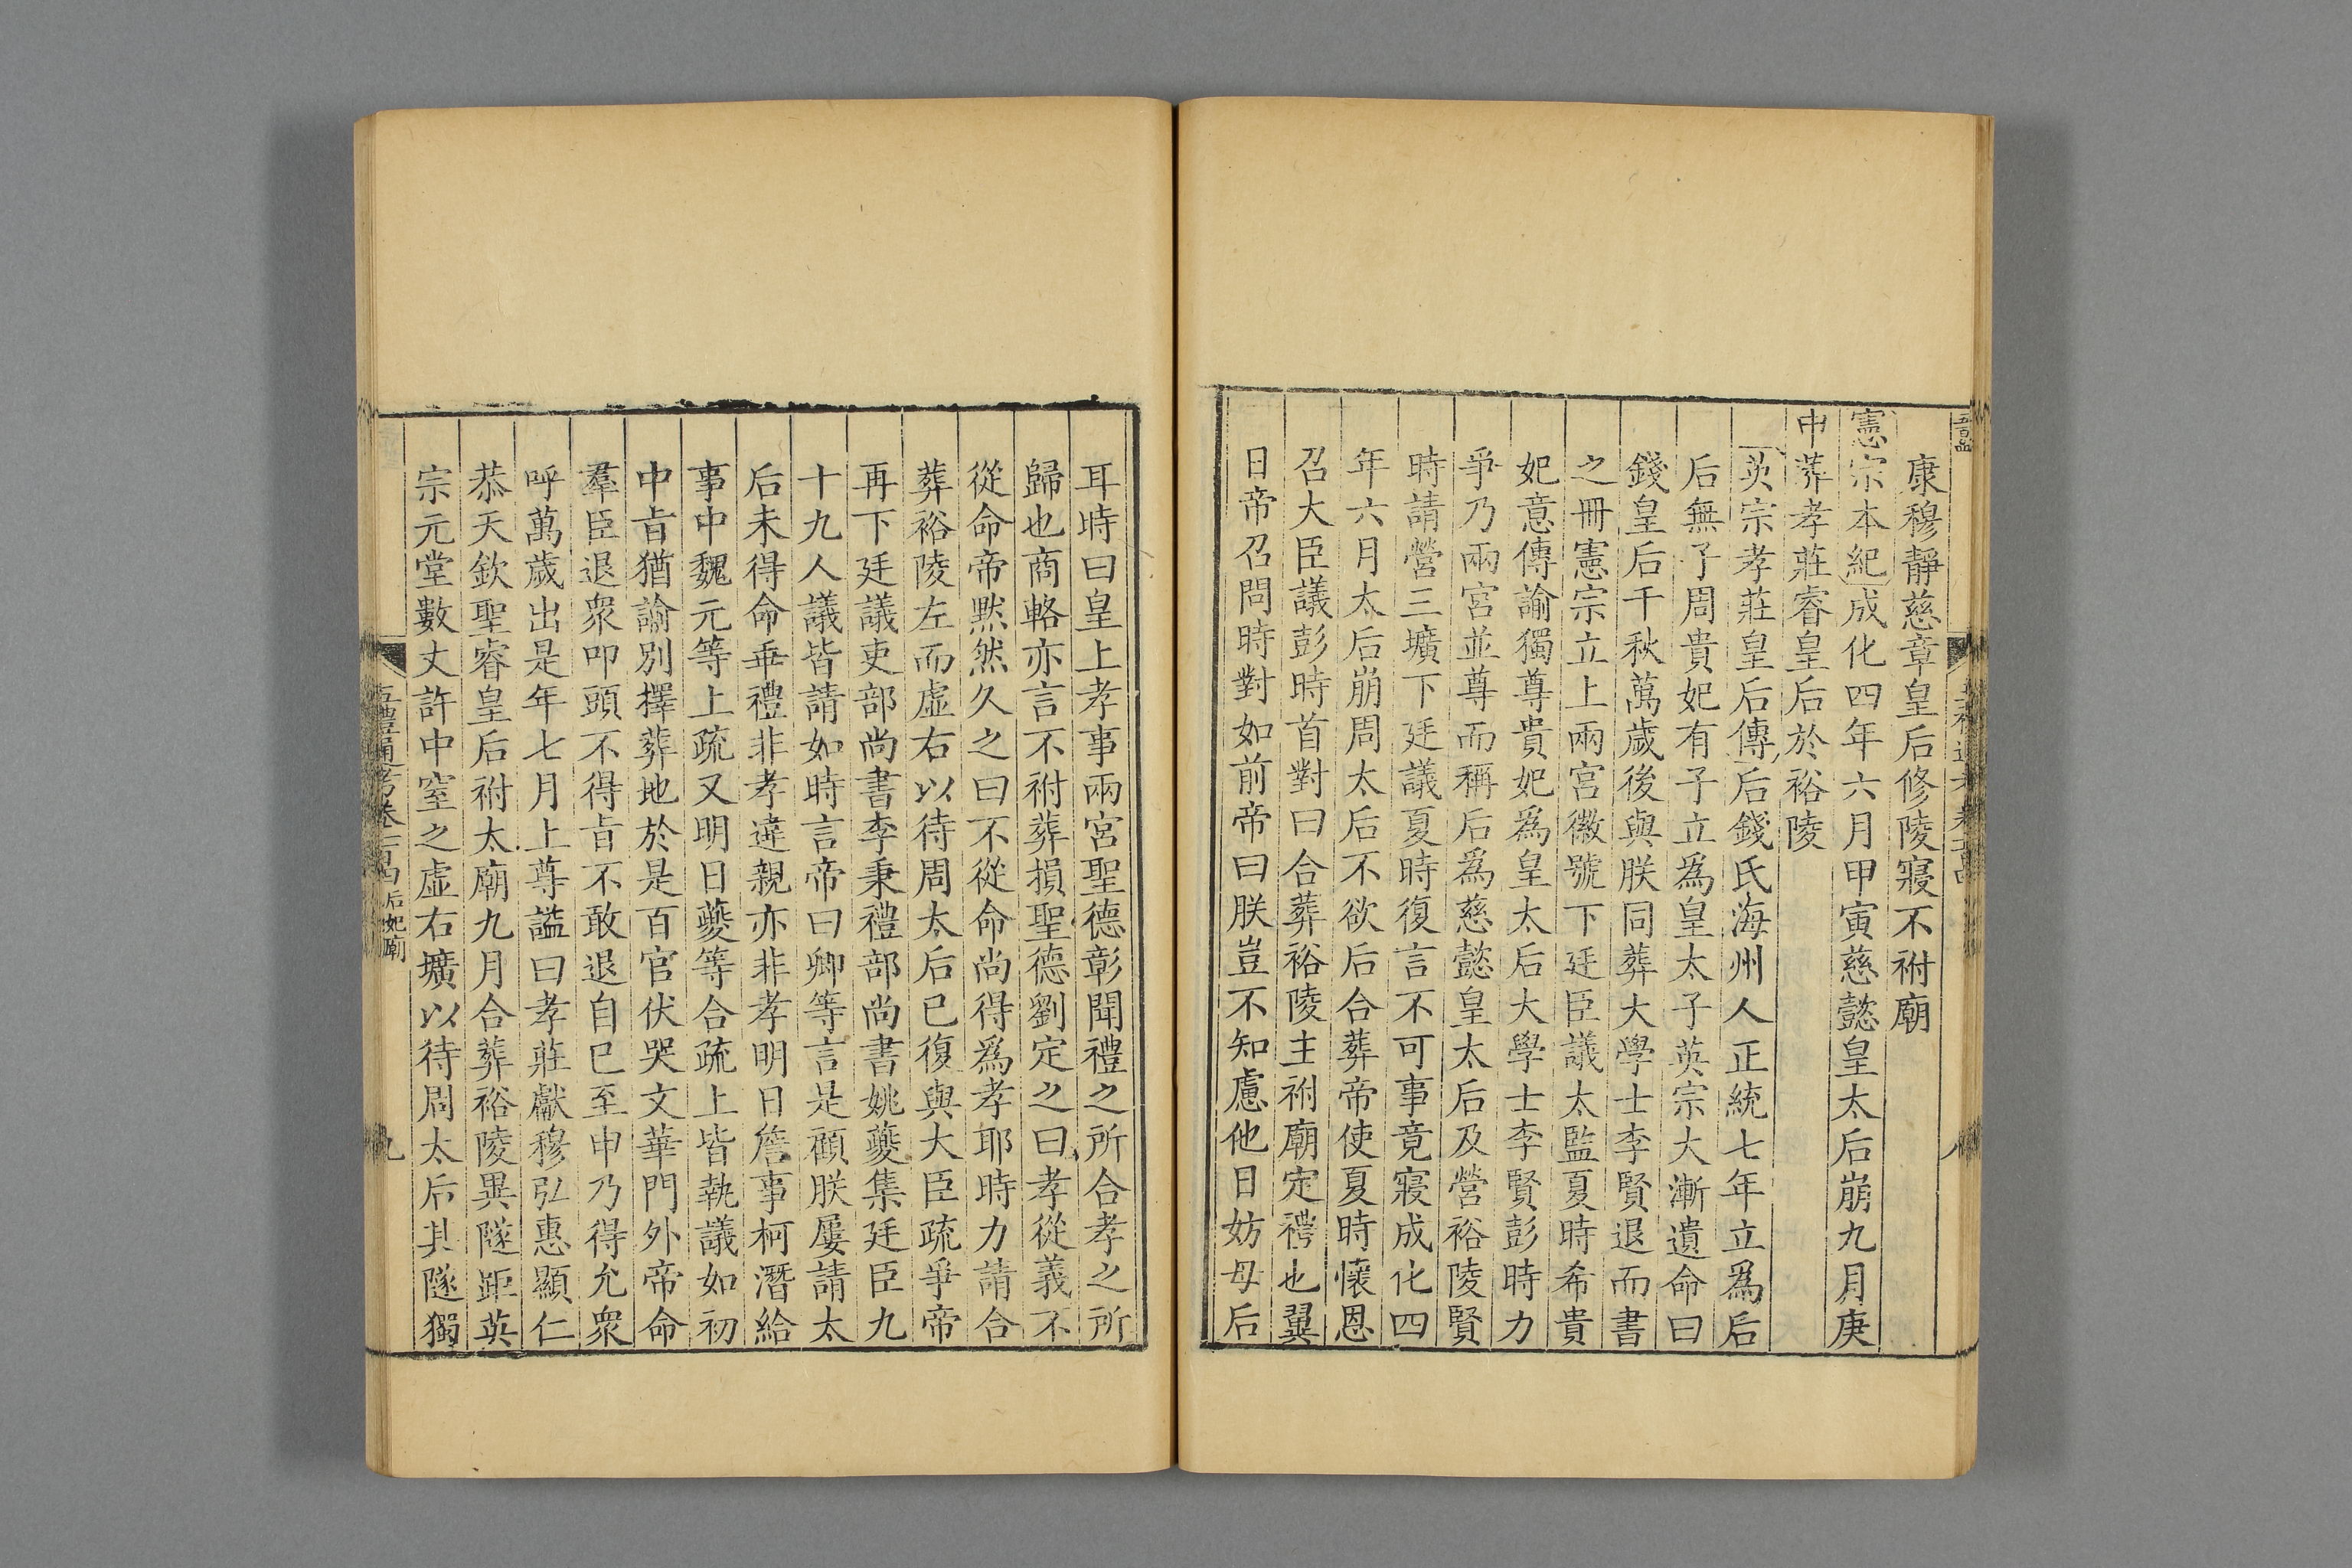 康穆靜慈章皇后修陵寢不祔廟
憲宗本紀成化四年六月甲寅慈懿皇太后崩九月庚
申葬孝莊睿皇后於裕陵
英宗孝莊皇后傳后錢氏海州人正統七年立爲后
后無子周貴妃有子立爲皇太子英宗大漸遺命曰
錢皇后千秋萬歲後與朕同葬大學士李賢退而書
之冊憲宗立上兩宮徽號下廷臣議太監夏時希貴
妃意傳諭獨尊貴妃爲皇太后大學士李賢彭時力
爭乃兩宮並尊而稱后爲慈懿皇太后及營裕陵賢
時請營三壙下廷議夏時復言不可事竟寢成化四
年六月太后崩周太后不欲后合葬帝使夏時懷恩
召大臣議彭時首對曰合葬裕陵主祔廟定禮也翼
日帝召問時對如前帝曰朕豈不知慮他日妨母后
耳時曰皇上孝事兩宮聖德彰聞禮之所合孝之所
歸也商輅亦言不祔葬損聖德劉定之曰孝從義不
從命帝默然久之曰不從命尚得爲孝耶時力請合
葬裕陵左而虛右以待周太后已復與大臣疏爭帝
再下廷議吏部尚書李秉禮部尚書姚夔集廷臣九
十九人議皆請如時言帝曰卿等言是顧朕屢請太
后未得命乖禮非孝違親亦非孝明日詹事柯潛給
事中魏元等上疏又明日夔等合疏上皆執議如初
中旨猶諭別擇葬地於是百官伏哭文華門外帝命
羣臣退衆叩頭不得旨不敢退自巳至申乃得允衆
呼萬歲出是年七月上尊謚曰孝莊獻穆弘惠顯仁
恭天欽聖睿皇后祔太廟九月合葬裕陵異隧距英
宗元堂數丈許中窒之虛右壙以待周太后其隧獨
五禮通考卷一百四 后妃廟
九